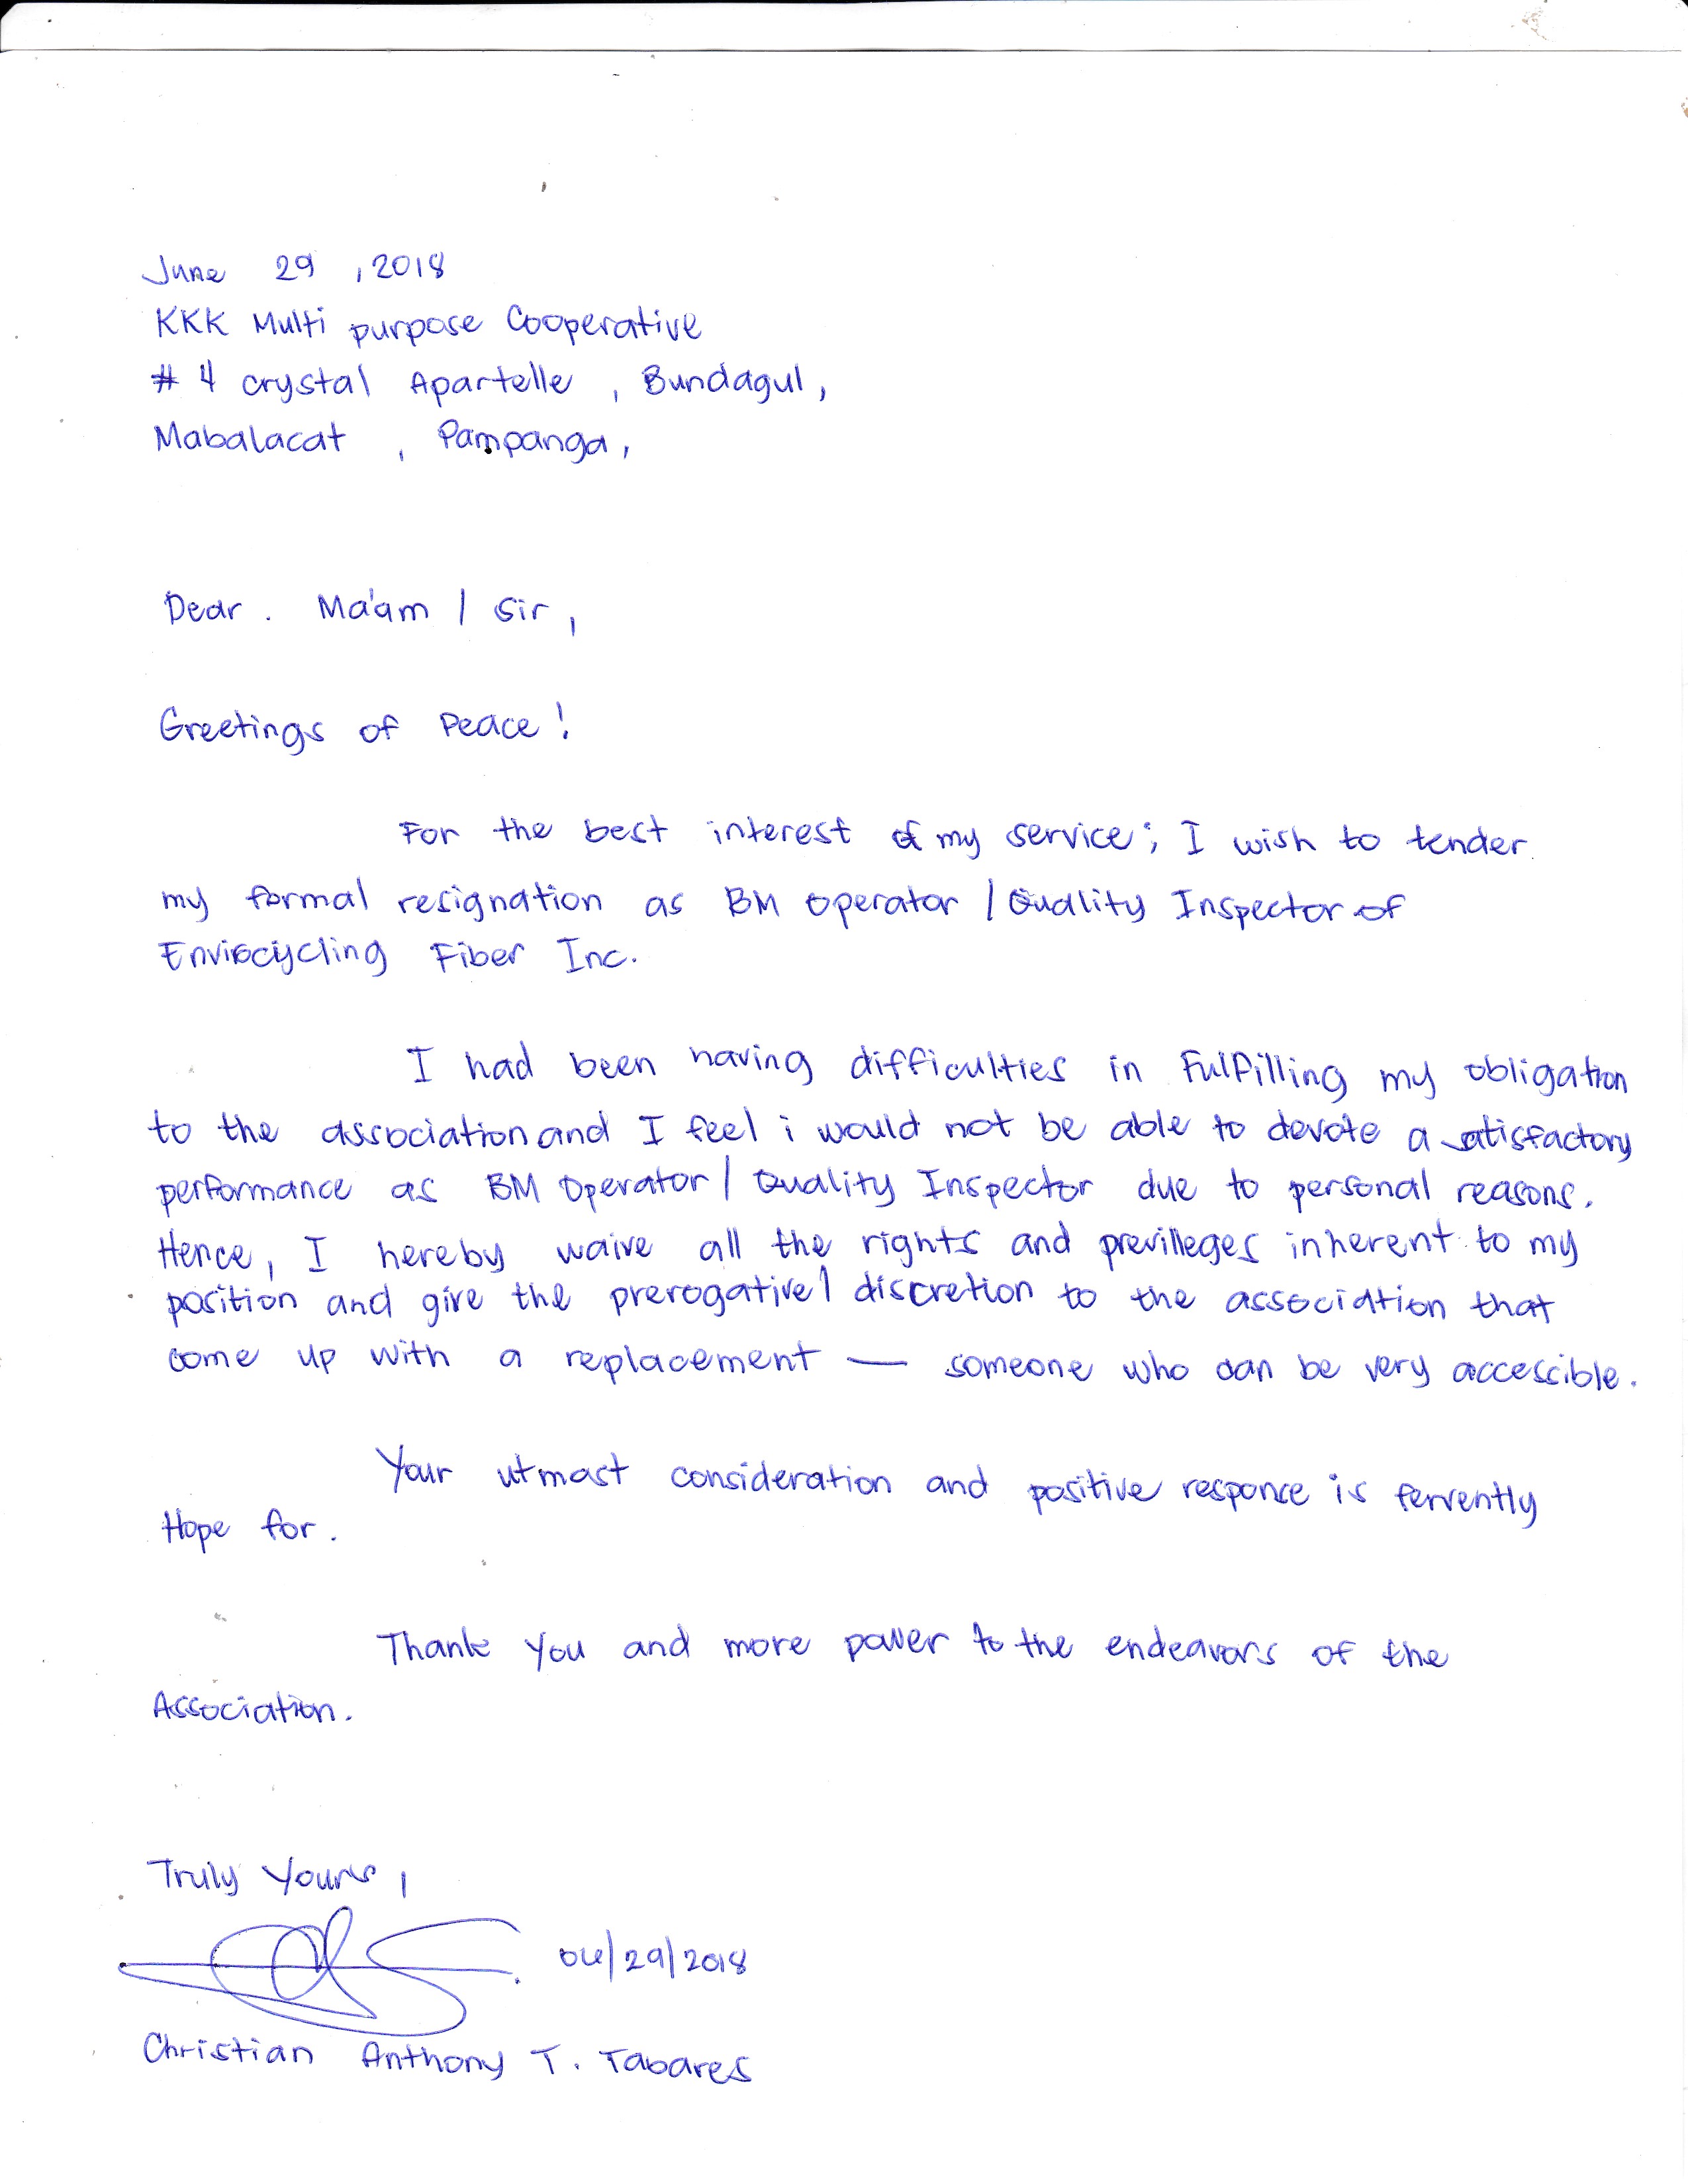 June 29 , 2018
KKK Multi purpose Cooperative
# 4 crystal Apartelle , Bundagul,
Mabalacat , Pampanga,
Dear . Ma'am / Sir ,
Greetings of Peace !
For the best interest of my service ; I wish to tender
my formal resignation as BM Operator / Quality Inspector of
Envirocycling Fiber Inc.
I had been having difficulties in Fulfilling my obligation
to the association and I feel i would not be able to devote a satisfactory
performance as BM Operator / Quality Inspector due to personal reasons.
Hence, I hereby waive all the rights and previlleges inherent to my
position and give the prerogative / discretion to the association that
come up with a replacement — someone who can be very accessible.
Your utmost consideration and positive response is fervently
Hope for.
Thank You and more power to the endeavors of the
Association.
Truly Yours ,
06/29/2018
Christian Anthony T. Tabares